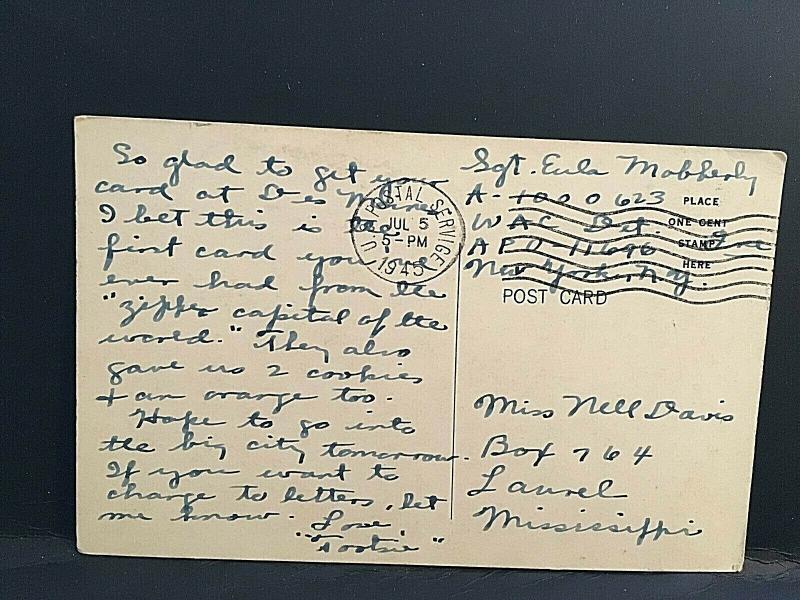 So glad to get your
card at Des Moines
I bet this is the
first card you
ever had from the
"zipper capital of the
world." They also
gave us 2 cookies
& an orange too.
Hope to go into
the big city tomorrow.
If you want to
change to letters, let
me know. Love
"Tootsie"
Sgt. Eula Mobberly
A-1000623
WAC Det.
APO-11696
New York, N.Y.
U.S. POSTAL SERVICE
JUL 5
5-PM
1945
PLACE
ONE CENT
STAMP
HERE
POST CARD
Miss Nell Davis
Box 764
Laurel
Mississippi